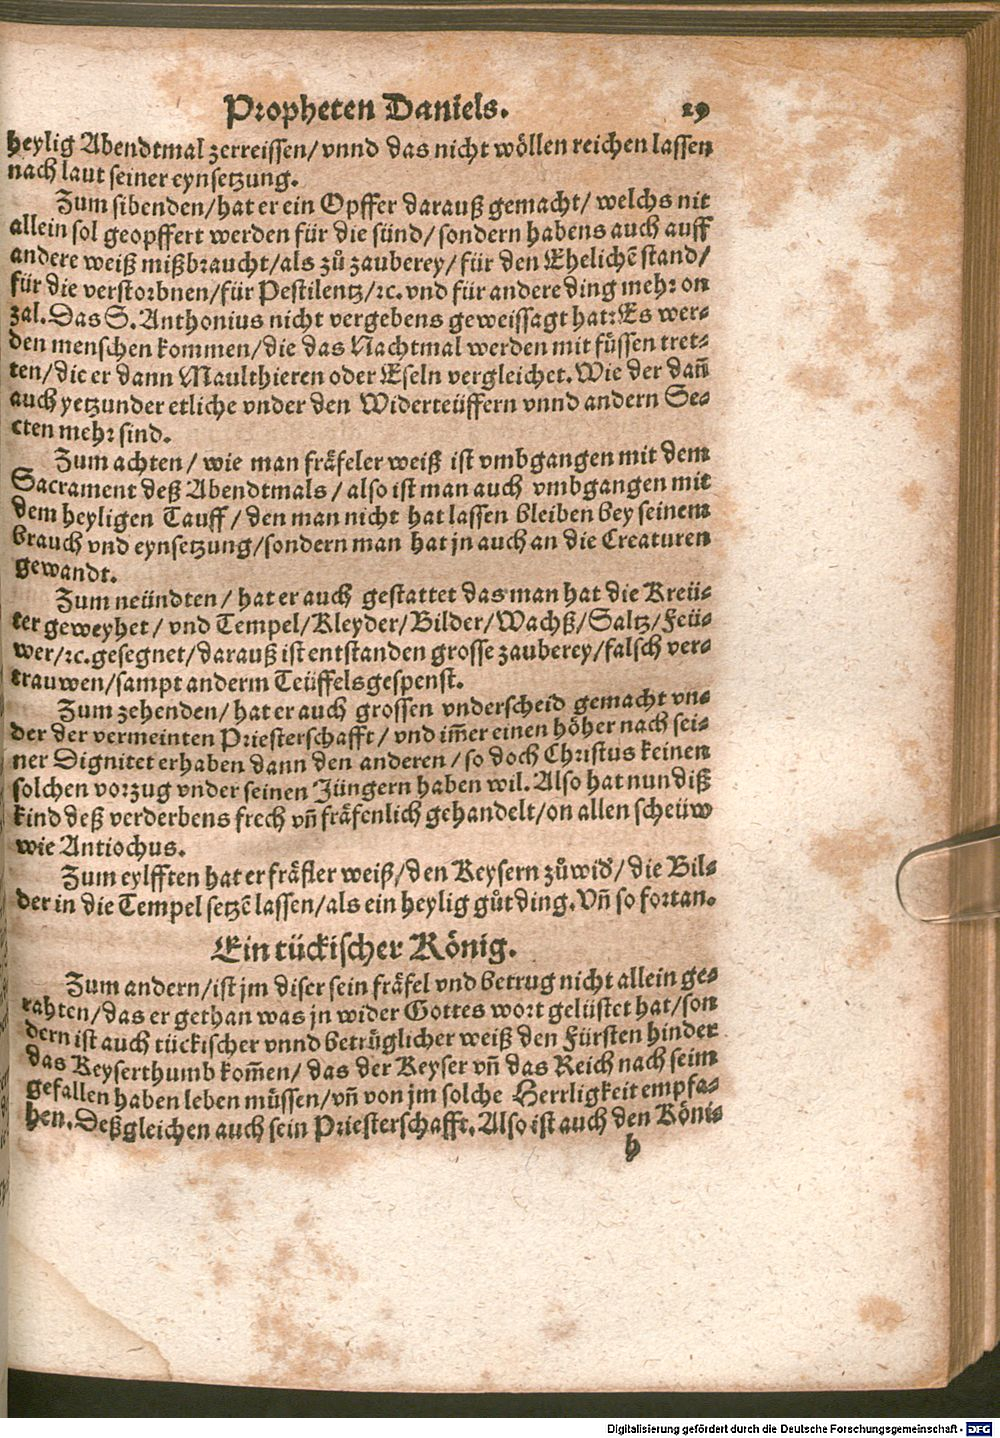 Propheten Daniels. 29
heylig Abendtmal zerreissen/ vnnd das nicht wöllen reichen lassen
nach laut seiner eynsetzung.
Zum sibenden/ hat er ein Opffer darauß gemacht/ welchs nit
allein sol geopffert werden für die sünd/ sondern habens auch auff
andere weiß mißbraucht/ als zů zauberey/ für den Ehelichē stand/
für die verstorbnen/ für Pestilentz/ ꝛc. vnd für andere ding mehr on
zal. Das S. Anthonius nicht vergebens geweissagt hat: Es wer-
den menschen kommen/ die das Nachtmal werden mit füssen tret-
ten/ die er dann Maulthieren oder Eseln vergleichet. Wie der dañ
auch yetzunder etliche vnder den Widerteüffern vnnd andern Se-
cten mehr sind.
Zum achten/ wie man fräfeler weiß ist vmbgangen mit dem
Sacrament deß Abendtmals/ also ist man auch vmbgangen mit
dem heyligen Tauff/ den man nicht hat lassen bleiben bey seinem
brauch vnd eynsetzung/ sondern man hat jn auch an die Creaturen
gewandt.
Zum neündten/ hat er auch gestattet das man hat die Kreü-
ter geweyhet/ vnd Tempel/ Kleyder/ Bilder/ Wachß/ Saltz/ Feü-
wer/ ꝛc. gesegnet/ darauß ist entstanden grosse zauberey/ falsch ver-
trauwen/ sampt anderm Teüffelsgespenst.
Zum zehenden/ hat er auch grossen vnderscheid gemacht vn-
der der vermeinten Priesterschafft/ vnd im̃er einen höher nach sei-
ner Dignitet erhaben dann den anderen/ so doch Christus keinen
solchen vorzug vnder seinen Jüngern haben wil. Also hat nun diß
kind deß verderbens frech vñ fräfenlich gehandelt/ on allen scheüw
wie Antiochus.
Zum eylfften hat er fräfler weiß/ den Keysern zůwid'/ die Bil-
der in die Tempel setzē lassen/ als ein heylig gůt ding. Vñ so fortan.
Ein tückischer König.
Zum andern/ ist jm diser sein fräfel vnd betrug nicht allein ge-
rahten/ das er gethan was jn wider Gottes wort gelüstet hat/ son
dern ist auch tückischer vnnd betrüglicher weiß den Fürsten hinder
das Keyserthumb kom̃en/ das der Keyser vñ das Reich nach seim
gefallen haben leben müssen/ vñ von jm solche Herrligkeit empfa-
hen. Deßgleichen auch sein Priesterschafft. Also ist auch den Köni-
h
Digitalisierung gefördert durch die Deutsche Forschungsgemeinschaft - DFG